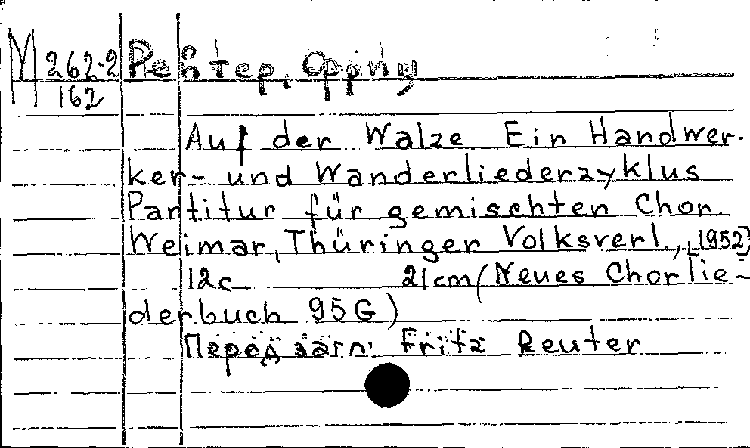 M 262-2
162
Auf der Walze Ein Handwer-
ker- und Wanderliederzyklus
Partitur für gemischten Chor.
Weimar, Thüringer Volksverl., [1952]
12c 21cm (Neues Chorlie-
derbuch 95G)
Перед загл: Fritz Reuter